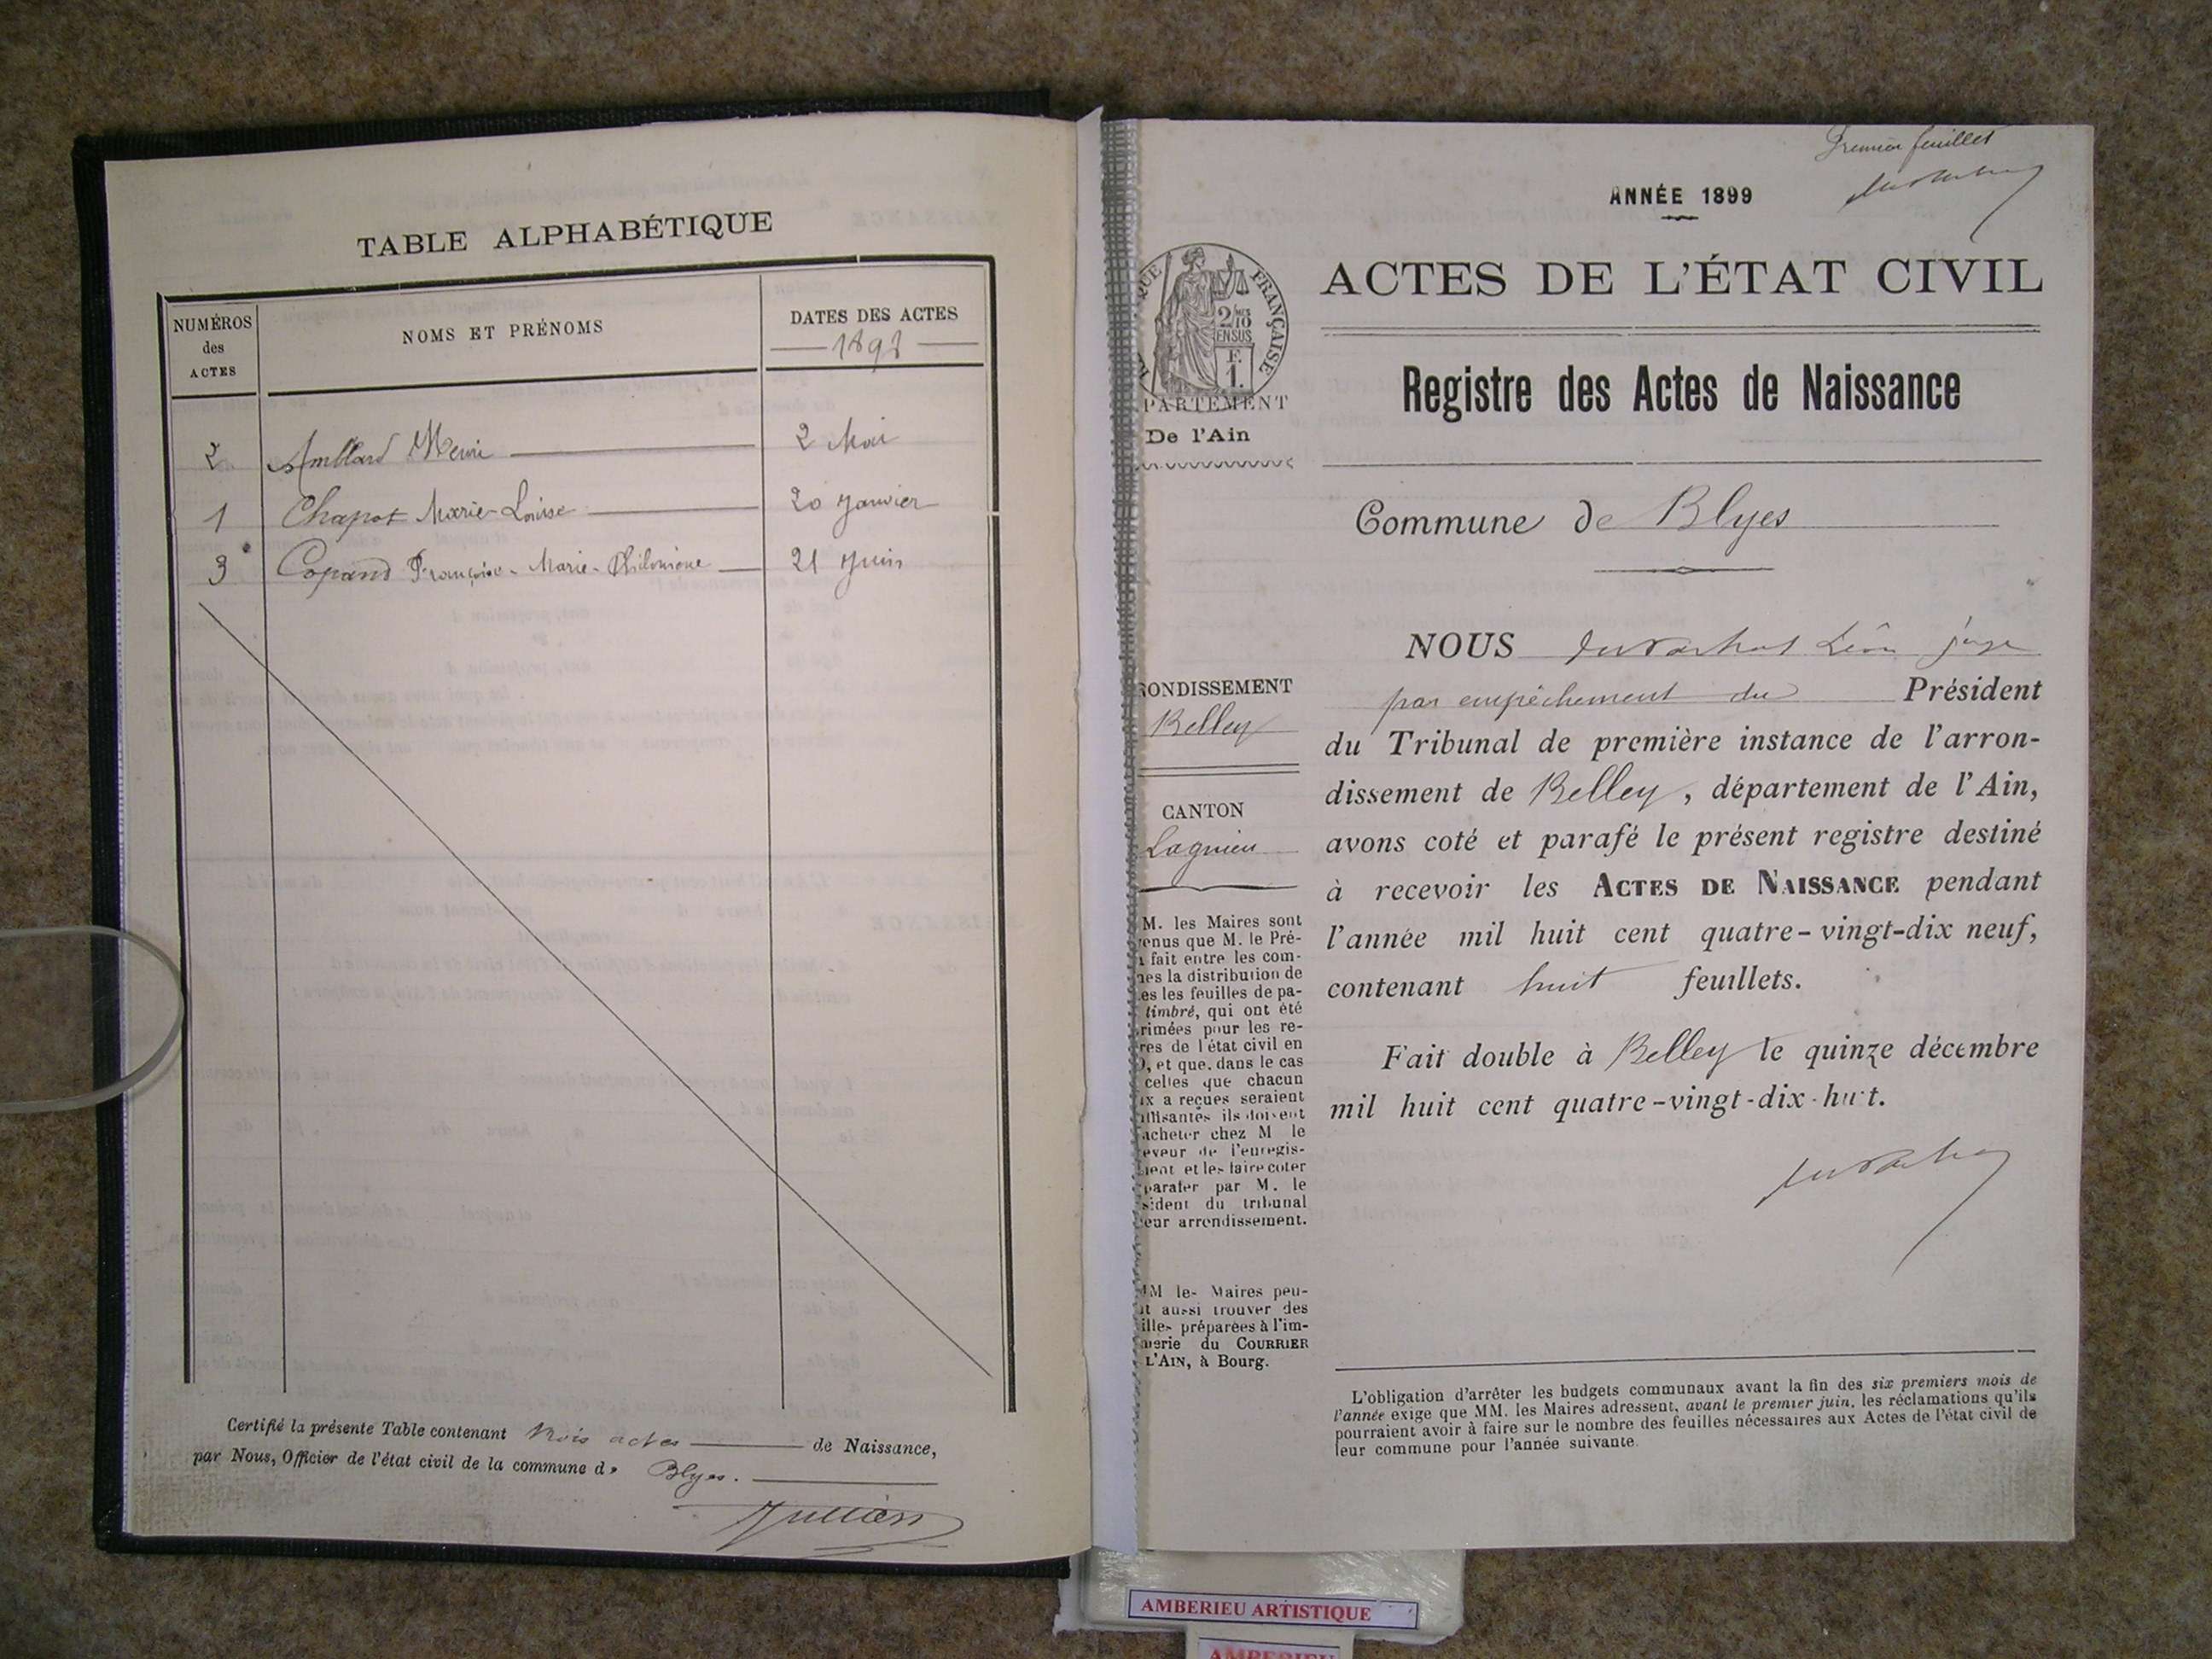 TABLE ALPHABÉTIQUE
NUMÉROS
des
ACTES
NOMS ET PRÉNOMS
DATES DES ACTES
1898
2 Amblard Henri 2 Mai
1 Chapot Marie-Louise 20 Janvier
3 Copand Françoise-Marie-Philomène 21 Juin
Certifié la présente Table contenant trois actes de Naissance,
par Nous, Officier de l'état civil de la commune de Blyes.
Jullien
Premier feuillet
ANNÉE 1899
QUE FRANÇAISE
2/10
EN SUS
F.
1.
PARTEMENT
De l'Ain
RONDISSEMENT
Belley
CANTON
Lagnieu
M. les Maires sont
enus que M. le Pré-
fait entre les com-
nes la distribution de
es les feuilles de pa-
timbré, qui ont été
rimées pour les re-
res de l'état civil en
, et que, dans le cas
celles que chacun
ux a reçues seraient
uffisantes ils doivent
acheter chez M le
eveur de l'enregis-
ment et les faire coter
parafer par M. le
sident du tribunal
eur arrondissement.
MM les Maires peu-
t aussi trouver des
illes préparées à l'im-
merie du COURRIER
L'AIN, à Bourg.
ACTES DE L'ÉTAT CIVIL
Registre des Actes de Naissance
Commune de Blyes
NOUS Léon juge
par empêchement du Président
du Tribunal de première instance de l'arron-
dissement de Belley, département de l'Ain,
avons coté et parafé le présent registre destiné
à recevoir les ACTES DE NAISSANCE pendant
l'année mil huit cent quatre-vingt-dix neuf,
contenant huit feuillets.
Fait double à Belley le quinze décembre
mil huit cent quatre-vingt-dix-huit.
L'obligation d'arrêter les budgets communaux avant la fin des six premiers mois de
l'année exige que MM. les Maires adressent, avant le premier juin, les réclamations qu'ils
pourraient avoir à faire sur le nombre des feuilles nécessaires aux Actes de l'état civil de
leur commune pour l'année suivante.
AMBERIEU ARTISTIQUE
AMBERIEU